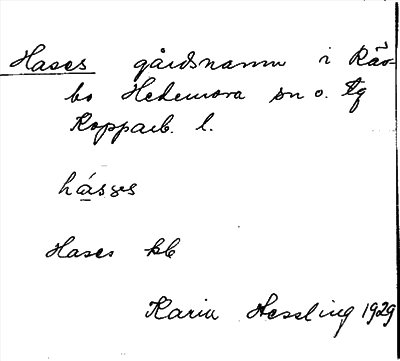 Hases gårdsnamn i Råd-
bo Hedemora sn o. tg
Kopparb. l.
hásɛs
Hases kb
Karin Hessling 1929